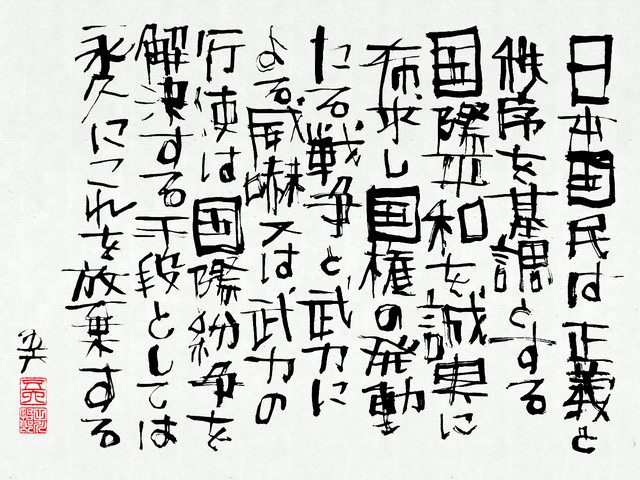 日本国民は正義と
秩序を基調とする
国際平和を誠実に
希求し国権の発動
たる戦争と武力に
よる威嚇又は武力の
行使は国際紛争を
解決する手段としては
永久にこれを放棄する